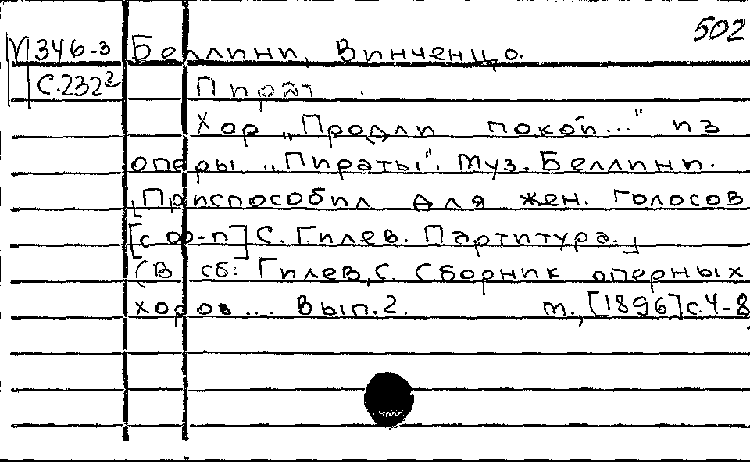 502
М 346-3 Беллини, Винченцо.
С.232² Пират.
Хор „Продли покой..." из
оперы „Пираты". Муз. Беллини.
Приспособил для жен. голосов
[с ф-п] С. Гилев. Партитура.
(В сб: Гилев, С. Сборник оперных
хоров... Вып.2. М., [1896] с.4-8